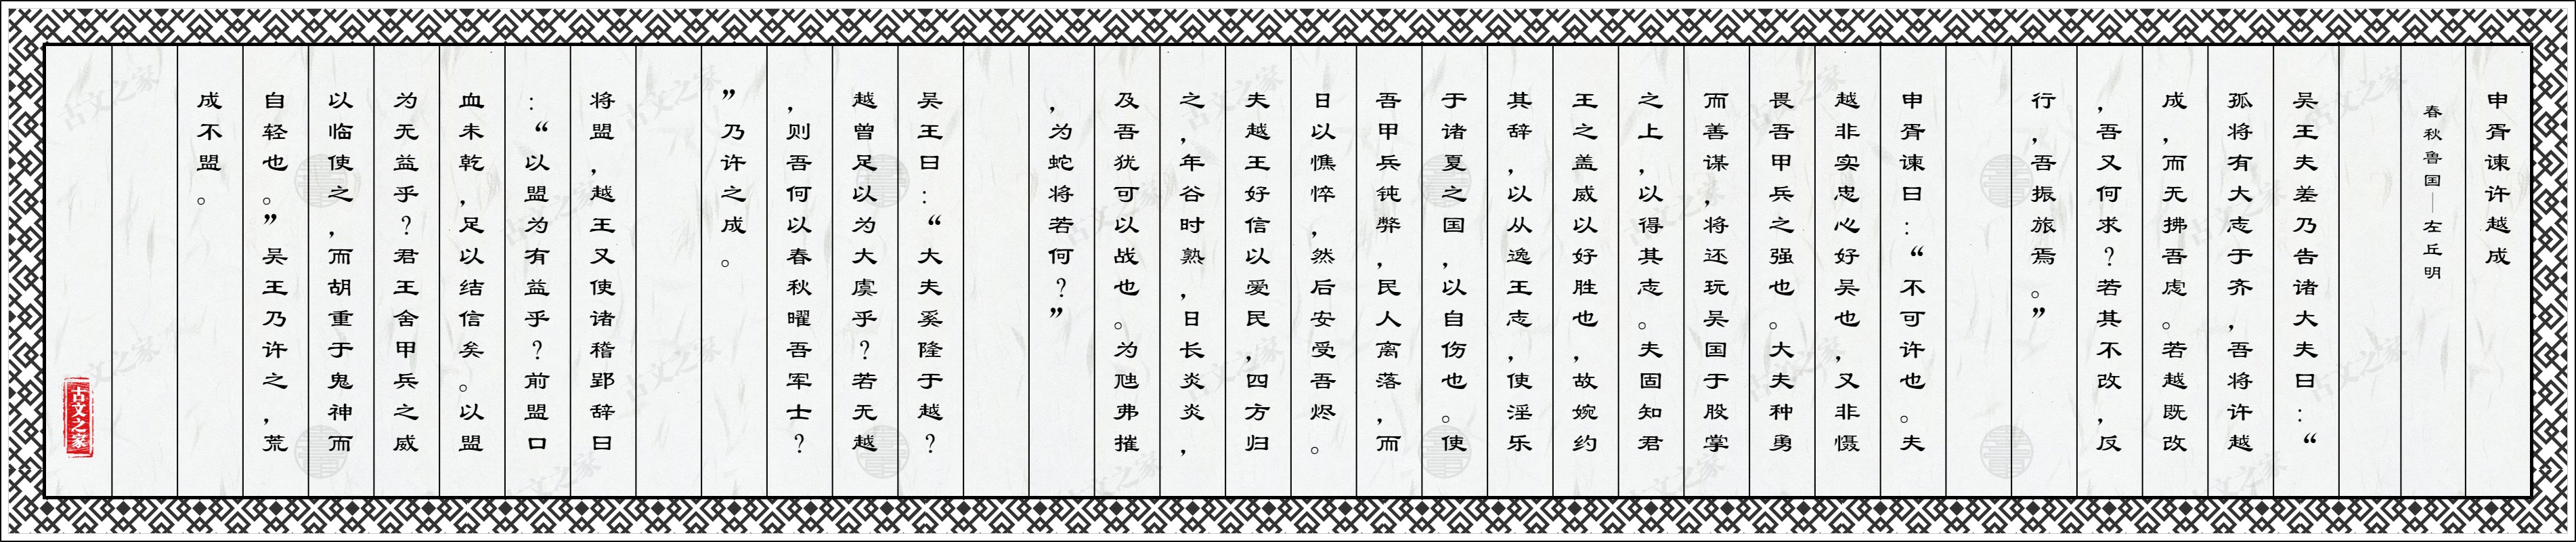 申胥谏许越成
春秋鲁国—左丘明
吴王夫差乃告诸大夫曰：“
孤将有大志于齐，吾将许越
成，而无拂吾虑。若越既改
，吾又何求？若其不改，反
行，吾振旅焉。”
申胥谏曰：“不可许也。夫
越非实忠心好吴也，又非慑
畏吾甲兵之强也。大夫种勇
而善谋，将还玩吴国于股掌
之上，以得其志。夫固知君
王之盖威以好胜也，故婉约
其辞，以从逸王志，使淫乐
于诸夏之国，以自伤也。使
吾甲兵钝弊，民人离落，而
日以憔悴，然后安受吾烬。
夫越王好信以爱民，四方归
之，年谷时熟，日长炎炎，
及吾犹可以战也。为虺弗摧
，为蛇将若何？”
吴王曰：“大夫奚隆于越？
越曾足以为大虞乎？若无越
，则吾何以春秋曜吾军士？
”乃许之成。
将盟，越王又使诸稽郢辞曰
：“以盟为有益乎？前盟口
血未乾，足以结信矣。以盟
为无益乎？君王舍甲兵之威
以临使之，而胡重于鬼神而
自轻也。”吴王乃许之，荒
成不盟。
古文之家